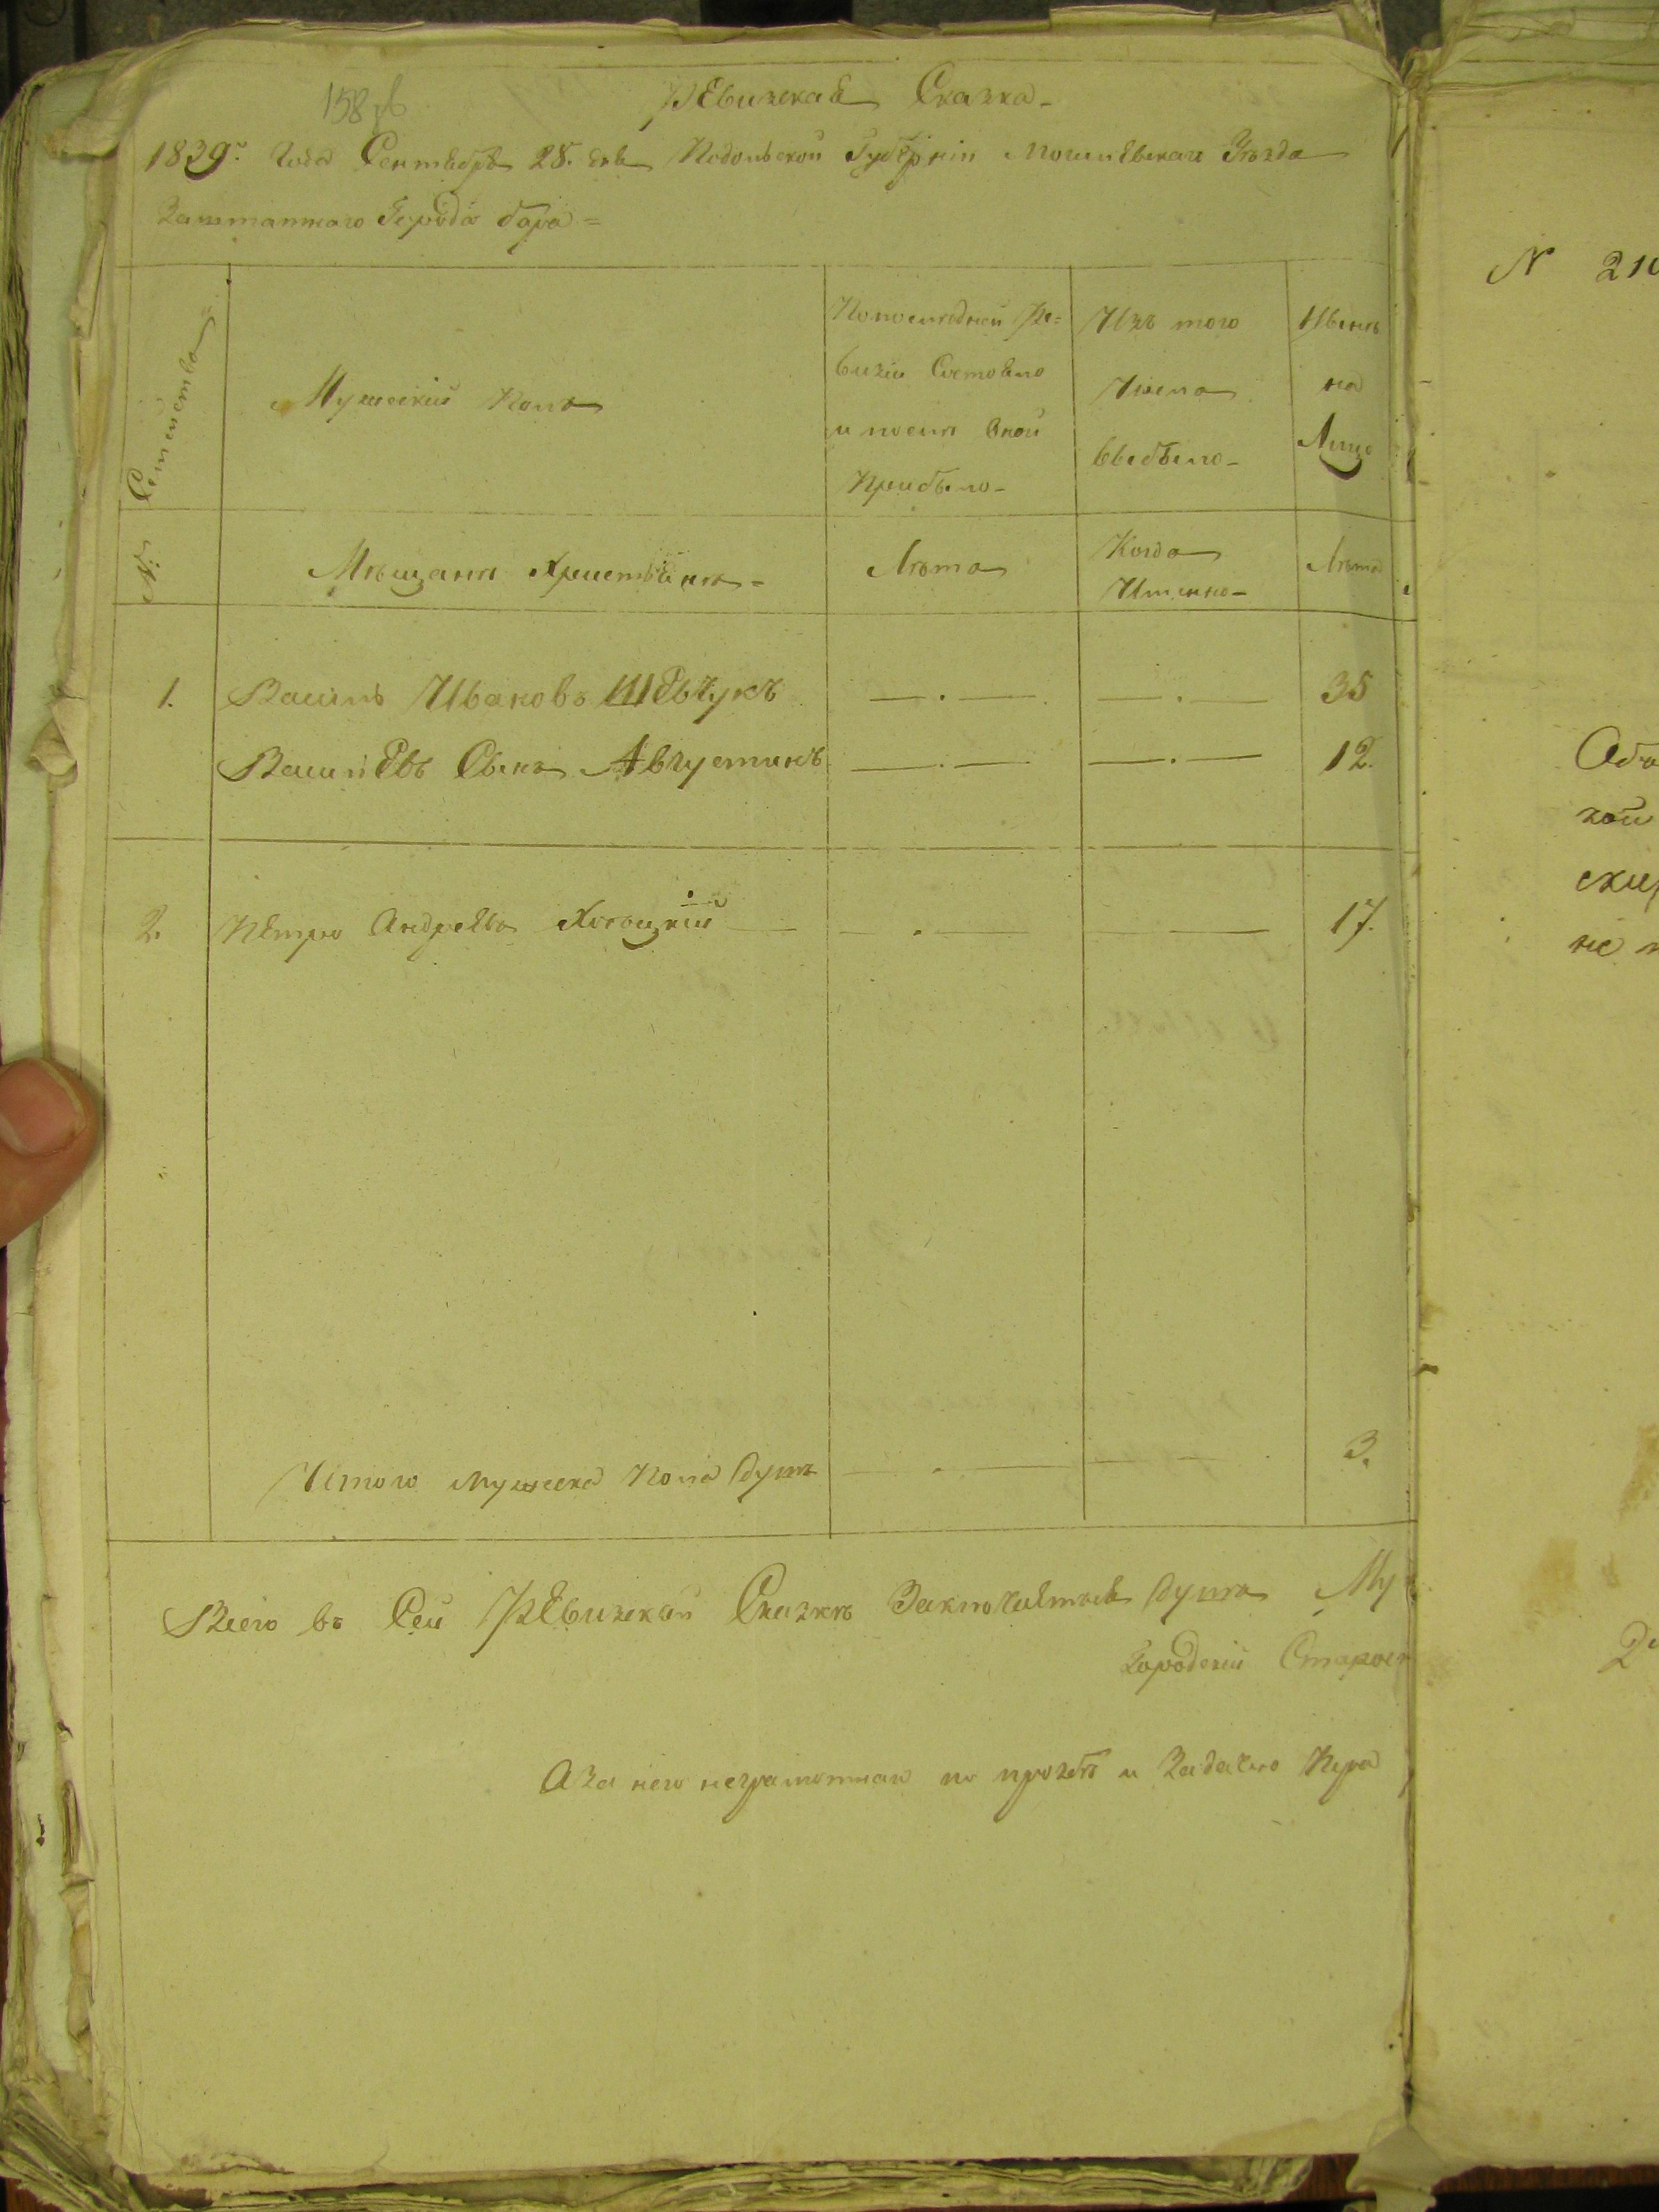 158 об
РЕвизская Сказка -
1839го Года Сентября 28. дня Подольской Губерніи Могилевскаго Уѣзда
Заштатнаго Города бара =
Семейства
Мужескій Полъ
Попоследней Ре=
визіи Состояло
и посля Оной
Прибыло -
Изъ того
Числа
Выбыло -
Нынѣ
на
Лицо
№:
Мѣщаня Христіяня -
Лѣта
Когда
Именно -
Лѣта
1. Василь Ивановъ ШЕвчукъ — . — — . — 35
ВасилЕвъ Сынъ Августинъ — . — — . — 12.
2. ПЕтро АндрЕевъ — . — — 17.
Итого мужеска Пола душъ — . — — — 3.
Всего въ Сей РЕвизской Сказкѣ Заключается душъ Му
Городскій Старос
А За него неграмотнаго по прозбѣ и Задачею Пера
N 210
ской
не